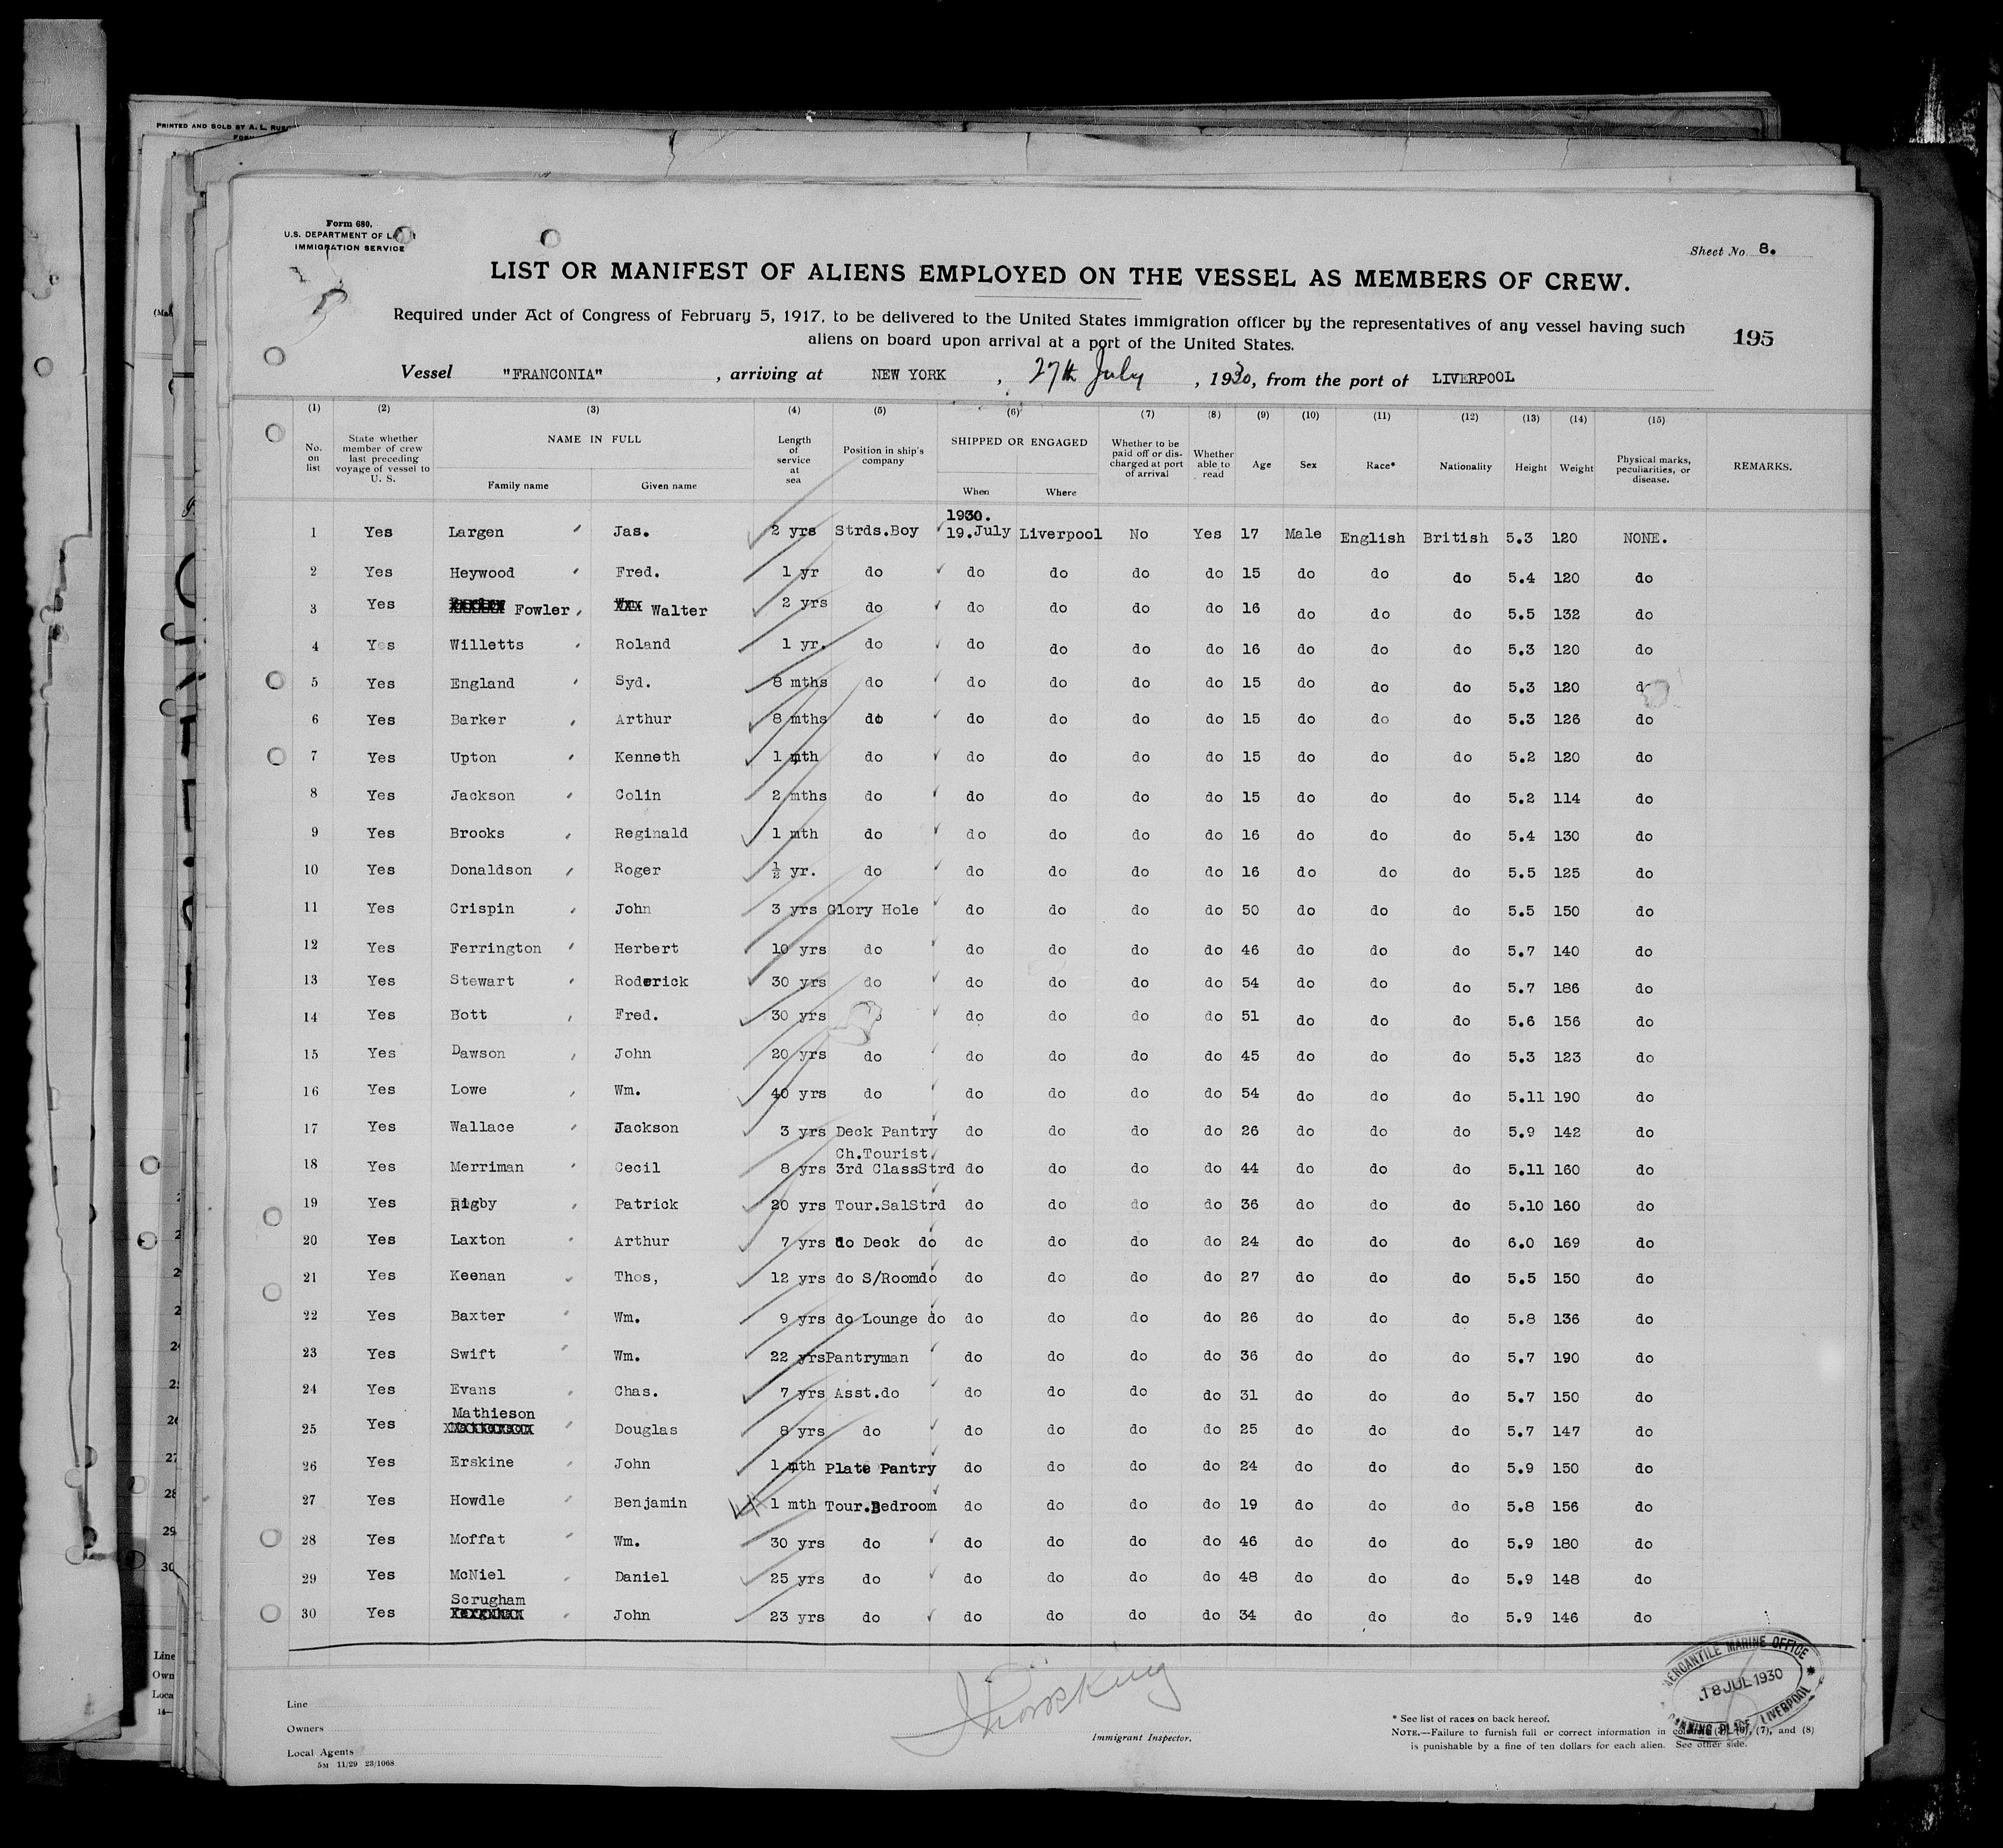 PRINTED AND SOLD BY A. L. RUS
Form 680.
U.S. DEPARTMENT OF
IMMIGRATION SERVICE
Sheet No. 8.
LIST OR MANIFEST OF ALIENS EMPLOYED ON THE VESSEL AS MEMBERS OF CREW.
Required under Act of Congress of February 5, 1917, to be delivered to the United States immigration officer by the representatives of any vessel having such
aliens on board upon arrival at a port of the United States.
195
Vessel "FRANCONIA" , arriving at NEW YORK , 27th July , 1930, from the port of LIVERPOOL
(1) (2) (3) (4) (5) (6) (7) (8) (9) (10) (11) (12) (13) (14) (15)
No. on list State whether member of crew last preceding voyage of vessel to U. S. NAME IN FULL Family name Given name Length of service at sea Position in ship's company SHIPPED OR ENGAGED When Where Whether to be paid off or discharged at port of arrival Whether able to read Age Sex Race* Nationality Height Weight Physical marks, peculiarities, or disease. REMARKS.
1930.
1 Yes Largen Jas. 2 yrs Strds.Boy 19.July Liverpool No Yes 17 Male English British 5.3 120 NONE.
2 Yes Heywood Fred. 1 yr do do do do do 15 do do do 5.4 120 do
3 Yes Fowler Walter 2 yrs do do do do do 16 do do do 5.5 132 do
4 Yes Willetts Roland 1 yr. do do do do do 16 do do do 5.3 120 do
5 Yes England Syd. 8 mths do do do do do 15 do do do 5.3 120 d
6 Yes Barker Arthur 8 mths do do do do do 15 do do do 5.3 126 do
7 Yes Upton Kenneth 1 mth do do do do do 15 do do do 5.2 120 do
8 Yes Jackson Colin 2 mths do do do do do 15 do do do 5.2 114 do
9 Yes Brooks Reginald 1 mth do do do do do 16 do do do 5.4 130 do
10 Yes Donaldson Roger ½ yr. do do do do do 16 do do do 5.5 125 do
11 Yes Crispin John 3 yrs Glory Hole do do do do 50 do do do 5.5 150 do
12 Yes Ferrington Herbert 10 yrs do do do do do 46 do do do 5.7 140 do
13 Yes Stewart Roderick 30 yrs do do do do do 54 do do do 5.7 186 do
14 Yes Bott Fred. 30 yrs do do do do 51 do do do 5.6 156 do
15 Yes Dawson John 20 yrs do do do do do 45 do do do 5.3 123 do
16 Yes Lowe Wm. 40 yrs do do do do do 54 do do do 5.11 190 do
17 Yes Wallace Jackson 3 yrs Deck Pantry do do do do 26 do do do 5.9 142 do
Ch.Tourist
18 Yes Merriman Cecil 8 yrs 3rd ClassStrd do do do do 44 do do do 5.11 160 do
19 Yes Rigby Patrick 20 yrs Tour.SalStrd do do do do 36 do do do 5.10 160 do
20 Yes Laxton Arthur 7 yrs do Deck do do do do do 24 do do do 6.0 169 do
21 Yes Keenan Thos, 12 yrs do S/Roomdo do do do do 27 do do do 5.5 150 do
22 Yes Baxter Wm. 9 yrs do Lounge do do do do do 26 do do do 5.8 136 do
23 Yes Swift Wm. 22 yrsPantryman do do do do 36 do do do 5.7 190 do
24 Yes Evans Chas. 7 yrs Asst.do do do do do 31 do do do 5.7 150 do
Mathieson
25 Yes Douglas 8 yrs do do do do do 25 do do do 5.7 147 do
26 Yes Erskine John 1 mth Plate Pantry do do do do 24 do do do 5.9 150 do
27 Yes Howdle Benjamin 1 mth Tour.Bedroom do do do do 19 do do do 5.8 156 do
28 Yes Moffat Wm. 30 yrs do do do do do 46 do do do 5.9 180 do
29 Yes McNiel Daniel 25 yrs do do do do do 48 do do do 5.9 148 do
Scrugham
30 Yes John 23 yrs do do do do do 34 do do do 5.9 146 do
Line
Owners
Local Agents
5M 11/29 23/1068
Immigrant Inspector.
* See list of races on back hereof.
NOTE.—Failure to furnish full or correct information in (7), and (8)
is punishable by a fine of ten dollars for each alien. See other side.
MERCANTILE MARINE OFFICE
18 JUL 1930
CANNING PLACE LIVERPOOL